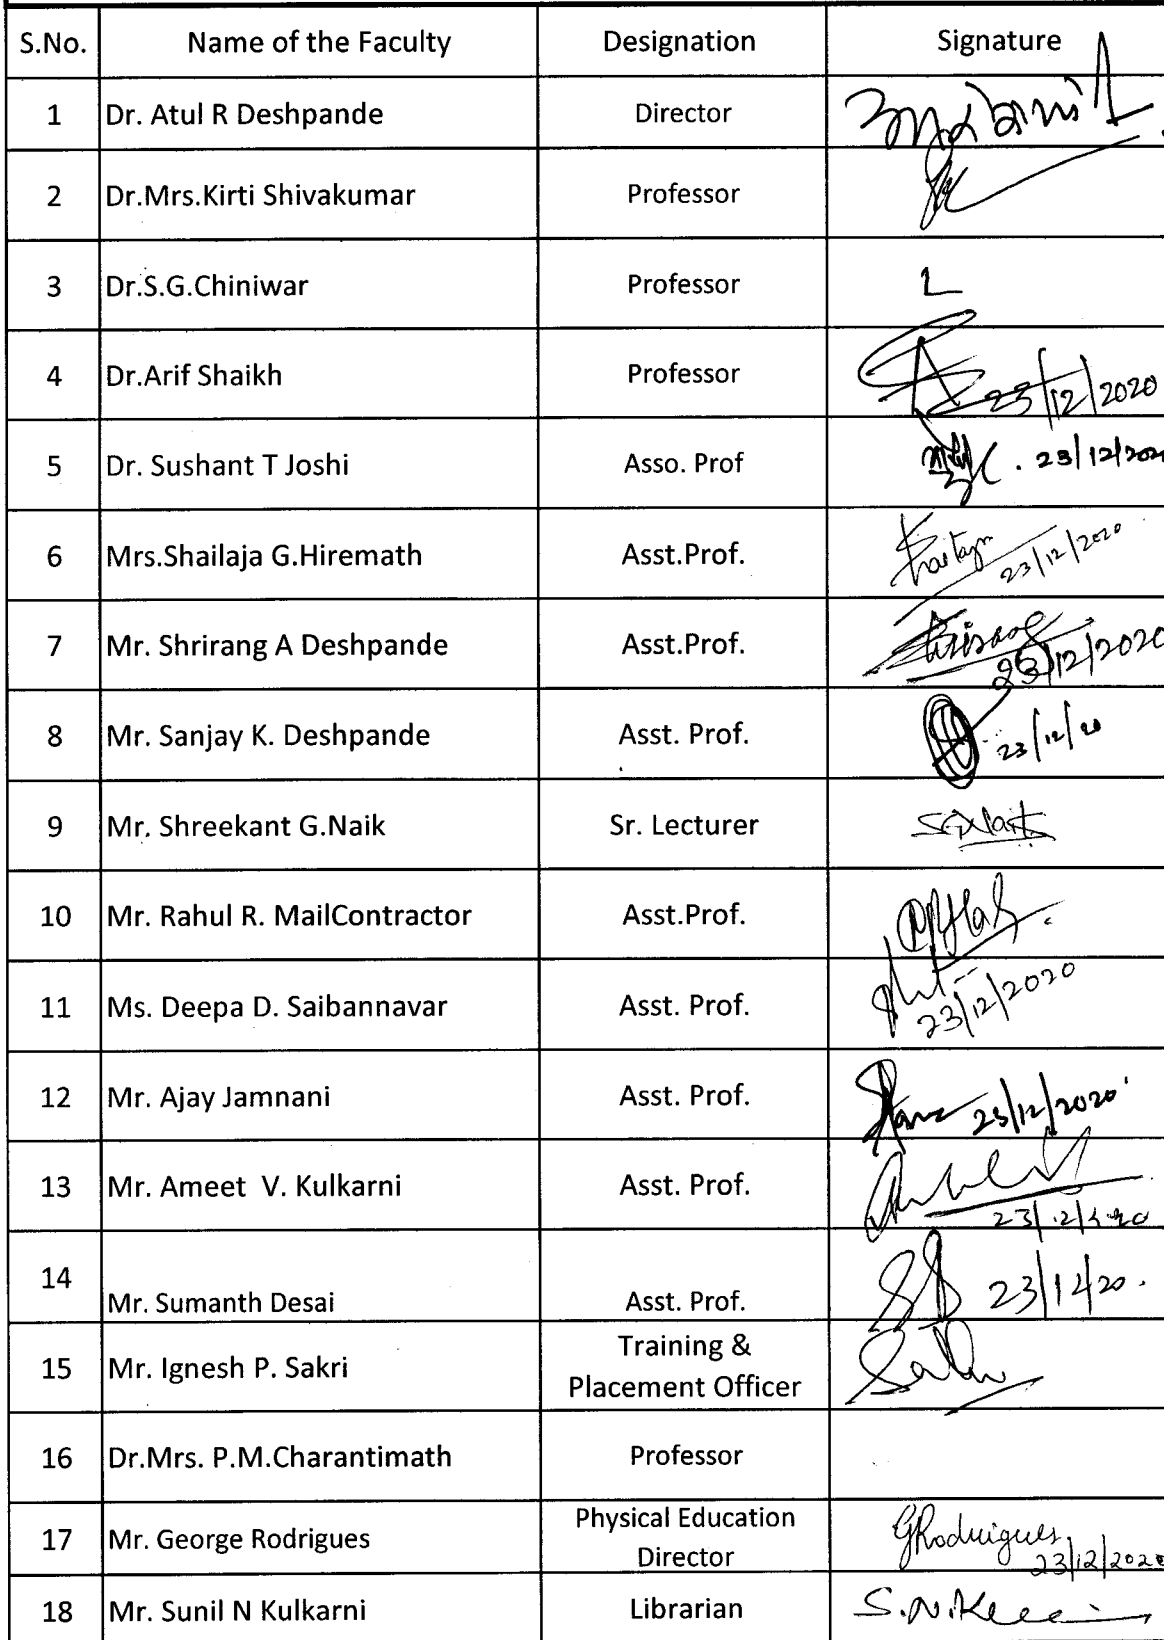 S.No. Name of the Faculty Designation Signature
1 Dr. Atul R Deshpande Director
2 Dr.Mrs.Kirti Shivakumar Professor
3 Dr.S.G.Chiniwar Professor
4 Dr.Arif Shaikh Professor 23/12/2020
5 Dr. Sushant T Joshi Asso. Prof 23/12/202
6 Mrs.Shailaja G.Hiremath Asst.Prof. 23/12/2020
7 Mr. Shrirang A Deshpande Asst.Prof. Shrirang 23/12/2020
8 Mr. Sanjay K. Deshpande Asst. Prof. 23/12/20
9 Mr. Shreekant G.Naik Sr. Lecturer SGNaik
10 Mr. Rahul R. MailContractor Asst.Prof.
11 Ms. Deepa D. Saibannavar Asst. Prof. 23/12/2020
12 Mr. Ajay Jamnani Asst. Prof. 23/12/2020
13 Mr. Ameet V. Kulkarni Asst. Prof. 23/12/2020
14 Mr. Sumanth Desai Asst. Prof. 23/12/20.
15 Mr. Ignesh P. Sakri Training &
Placement Officer
16 Dr.Mrs. P.M.Charantimath Professor
17 Mr. George Rodrigues Physical Education
Director GRodrigues 23/12/2020
18 Mr. Sunil N Kulkarni Librarian